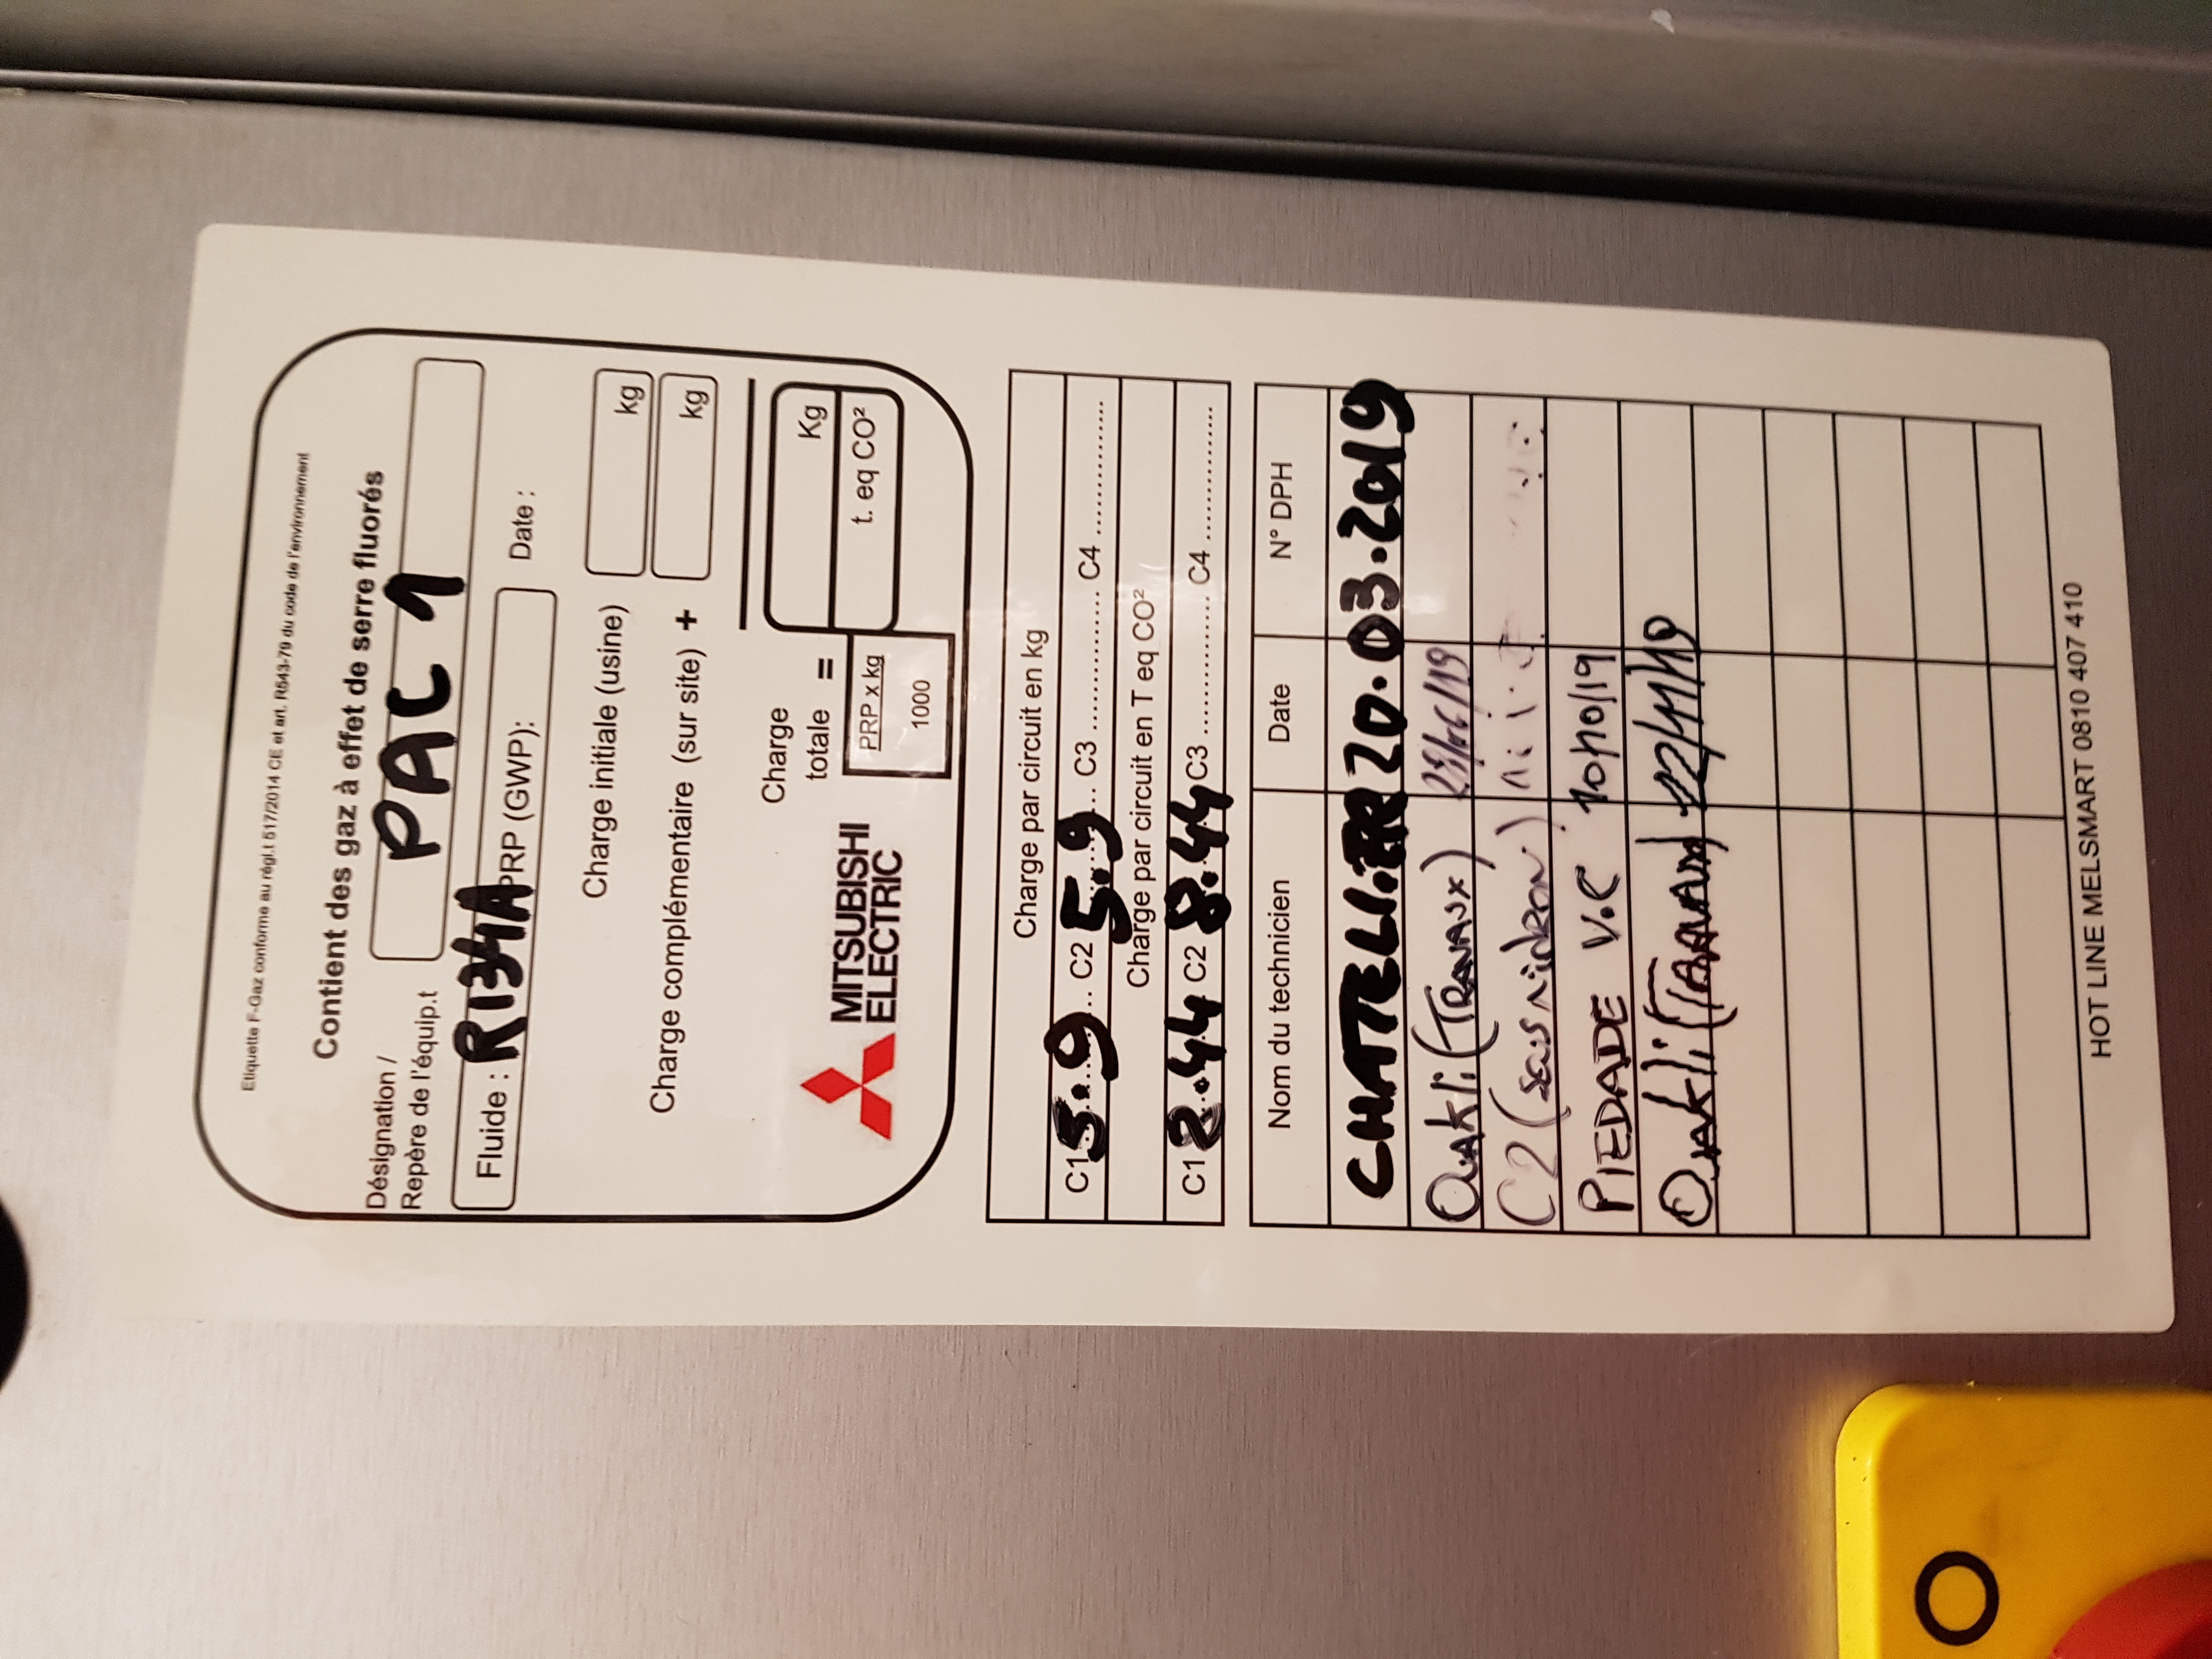 Etiquette F-Gaz conforme au régl.t 517/2014 CE et art. R543-79 du code de l'environnement
Contient des gaz à effet de serre fluorés
Désignation /
Repère de l'équip.t
PAC 1
Fluide : R134A PRP (GWP):
Date :
Charge initiale (usine) kg
Charge complémentaire (sur site) + kg
Charge
totale = Kg
MITSUBISHI
ELECTRIC
PRP x kg
1000
t. eq CO²
Charge par circuit en kg
C1 5.9 C2 5.9 C3 ............... C4 ...............
Charge par circuit en T eq CO²
C1 8.44 C2 8.44 C3 ............... C4 ...............
Nom du technicien Date N° DPH
CHATELLIER 20.03.2019
Ouakli (TRAVAUX)
C2
PIEDADE V.C 10/10/19
Ouakli (TRAVAUX) 22/11/19
HOT LINE MELSMART 0810 407 410
O